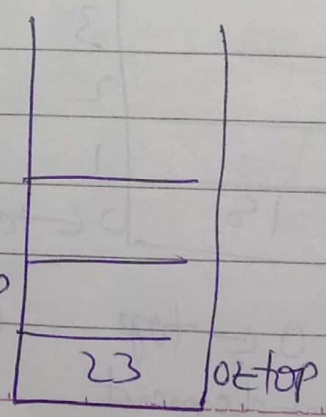 23 0←top